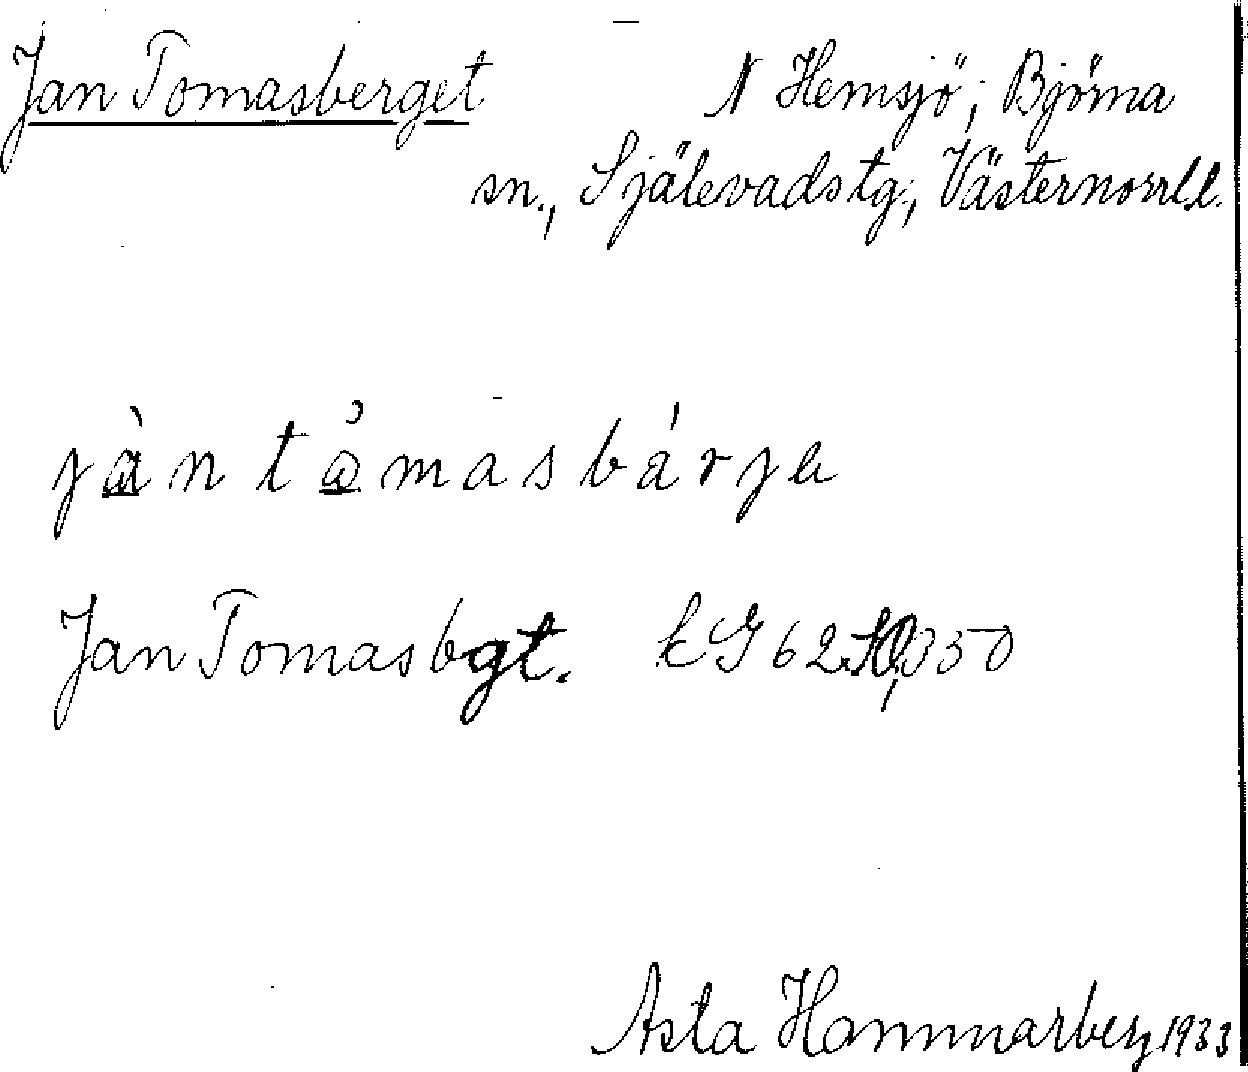 Jan Tomasberget N Hemsjö, Björna
sn., Själevads tg., Västernorrl.l.
jàn tåmasbárja
Jan Tomasbgt. kG 62 350
Asta Hammarberg 1933